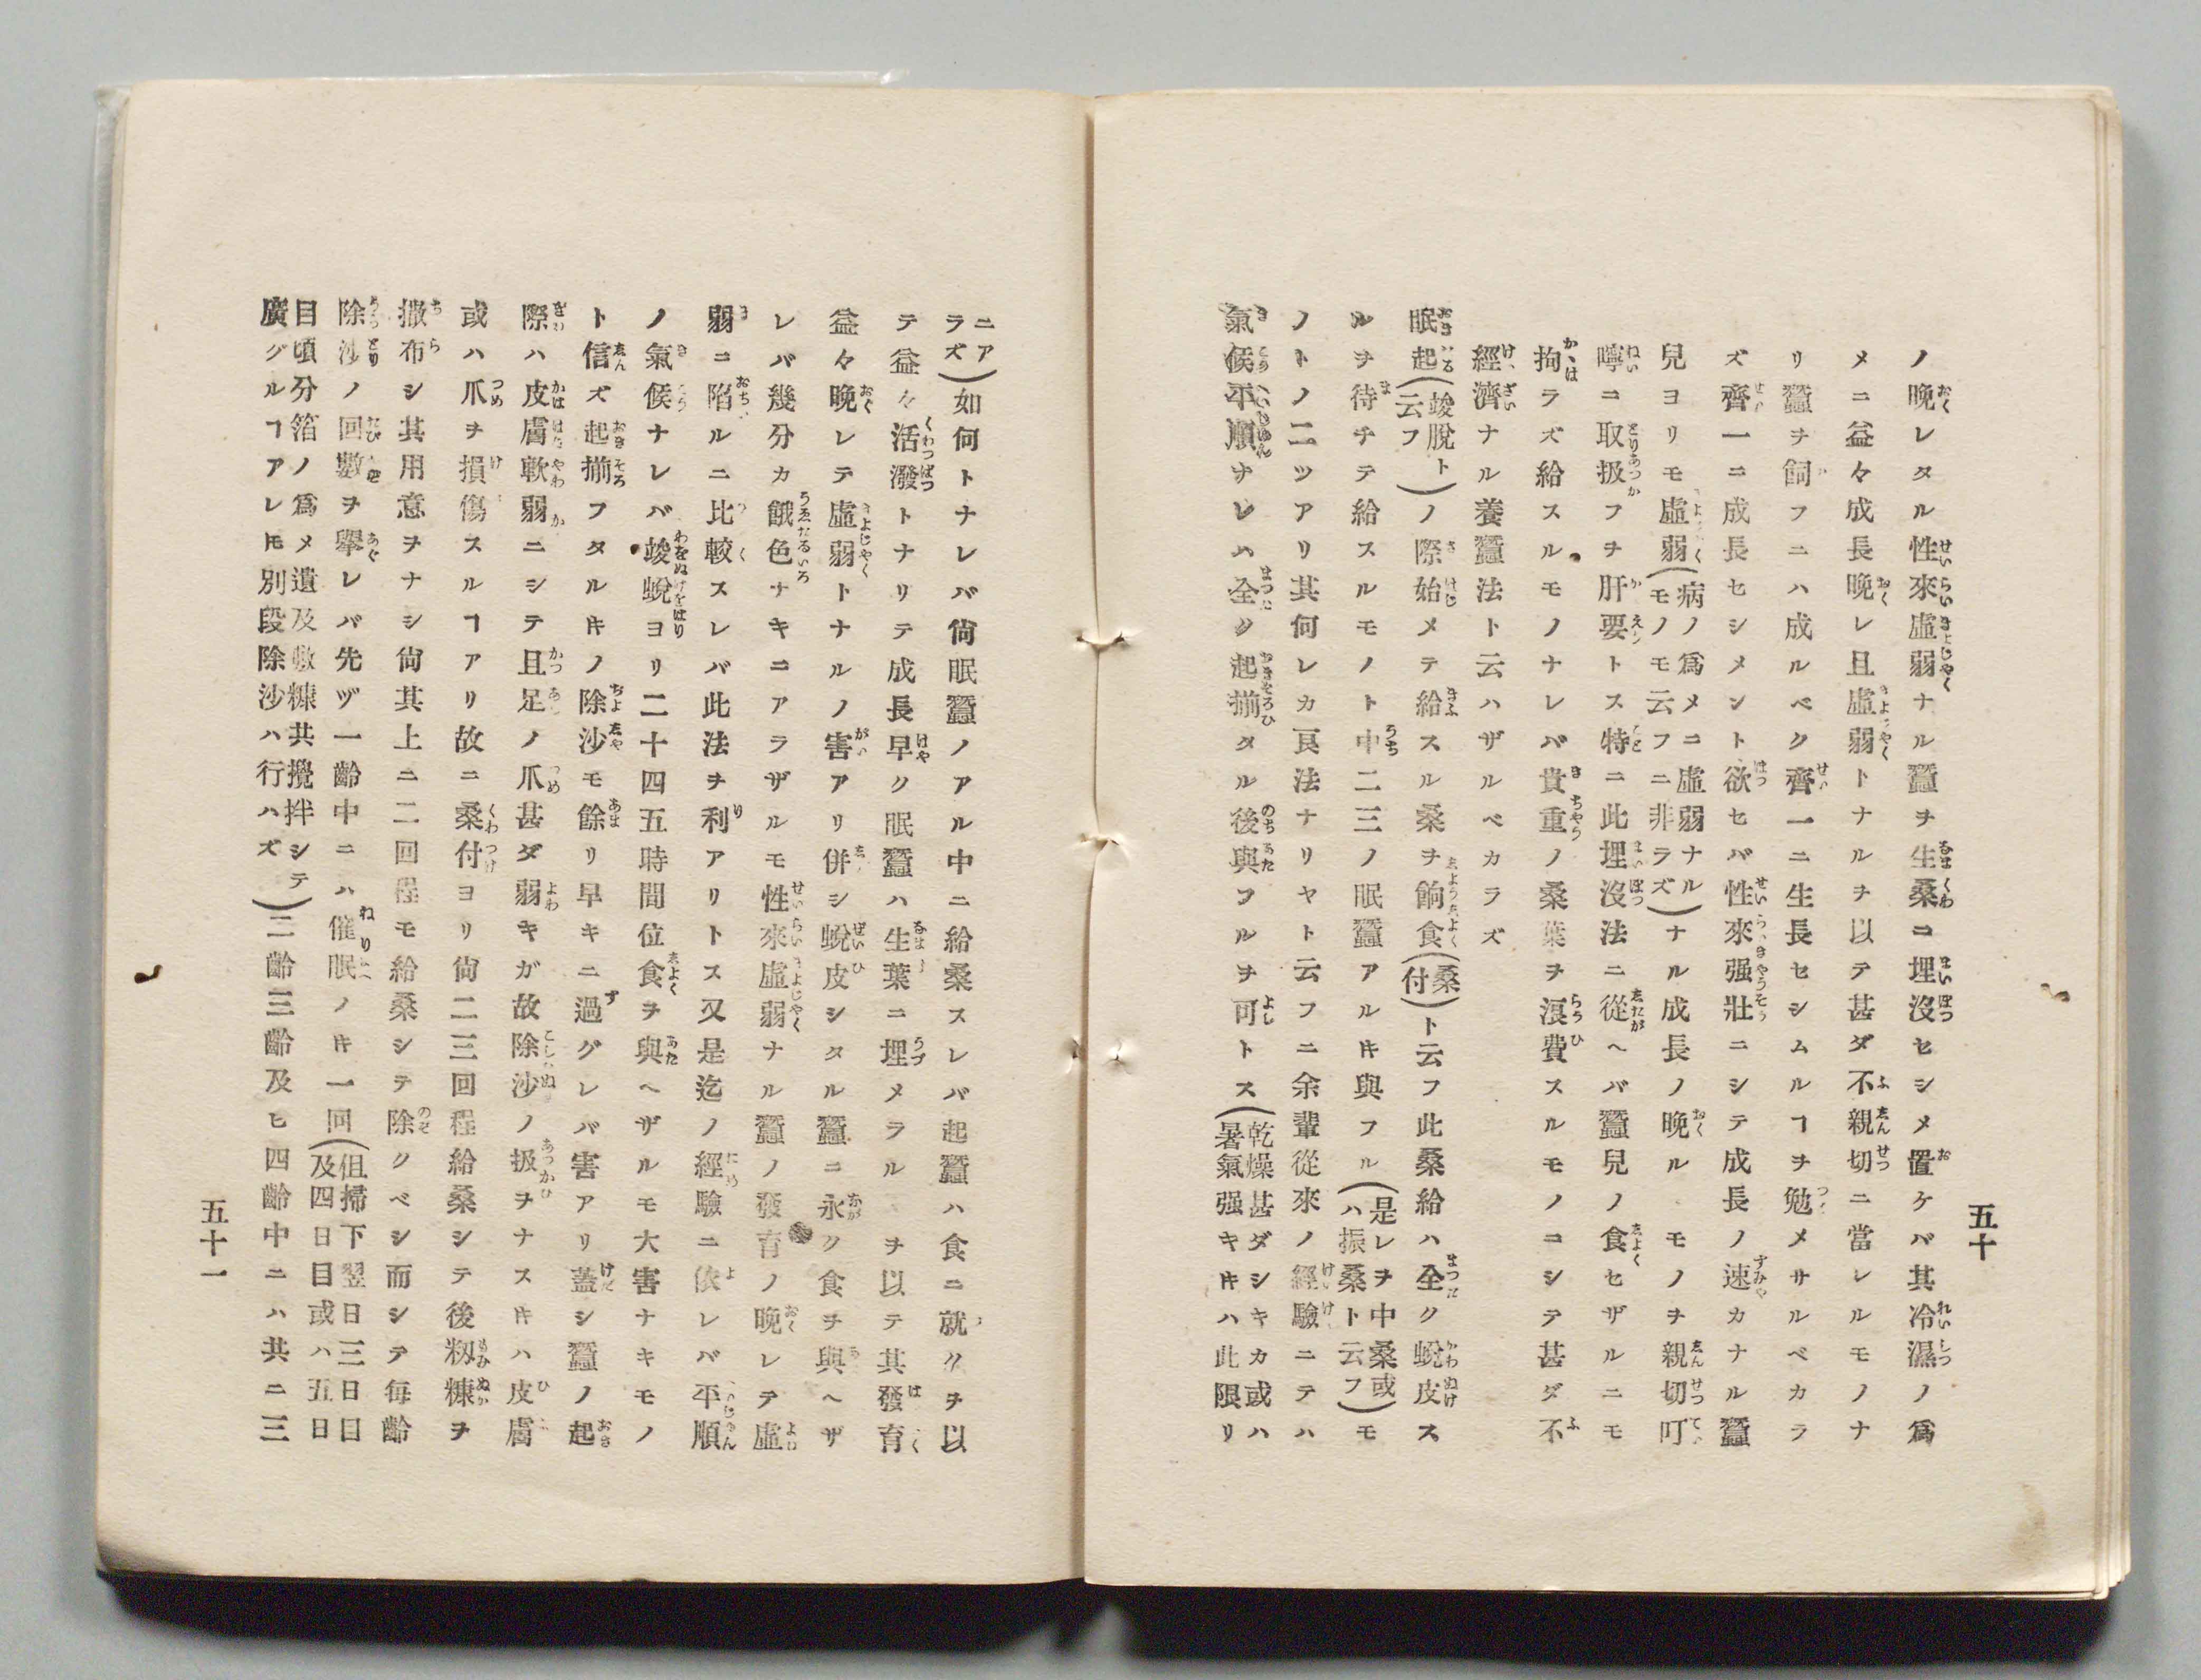 五十
ノ晩レタル性來虛弱ナル蠶ヲ生桑ニ埋沒セシメ置ケバ其冷濕ノ爲
メニ益々成長晩レ且虛弱トナルヲ以テ甚ダ不親切ニ當レルモノナ
リ蠶ヲ飼フニハ成ルベク齊一ニ生長セシムルヿヲ勉メサルベカラ
ズ齊一ニ成長セシメント欲セバ性來强壯ニシテ成長ノ速カナル蠶
兒ヨリモ虛弱(病ノ爲メニ虛弱ナルモノモ云フニ非ラズ)ナル成長ノ晩ルモノヲ親切叮
嚀ニ取扱フヲ肝要トス特ニ此埋沒法ニ從ヘバ蠶兒ノ食セザルニモ
拘ラズ給スルモノナレバ貴重ノ桑葉ヲ浪費スルモノニシテ甚ダ不
經濟ナル養蠶法ト云ハザルベカラズ
眠起(竣脫ト云フ)ノ際始メテ給スル桑ヲ餉食(桑付)ト云フ此桑給ハ全ク蛻皮ス
ルヲ待チテ給スルモノト中二三ノ眠蠶アルトキ與フル(是レヲ中桑或ハ振桑ト云フ)モ
ノトノ二ツアリ其何レカ良法ナリヤト云フニ余輩從來ノ經驗ニテハ
氣候平順ナレハ全ク起揃タル後與フルヲ可トス(乾燥甚ダシキカ或ハ暑氣强キトキハ此限リ
ニアラズ)如何トナレバ尙眠蠶ノアル中ニ給桑スレバ起蠶ハ食ニ就クヲ以
テ益々活潑トナリテ成長早ク眠蠶ハ生葉ニ埋メラルヽヲ以テ其發育
益々晩レテ虛弱トナルノ害アリ併シ蛻皮シタル蠶ニ永ク食ヲ與ヘザ
レバ幾分カ餓色ナキニアラザルモ性來虛弱ナル蠶ノ發育ノ晩レテ虛
弱ニ陷ルニ比較スレバ此法ヲ利アリトス又是迄ノ經驗ニ依レバ平順
ノ氣候ナレバ竣蛻ヨリ二十四五時間位食ヲ與ヘザルモ大害ナキモノ
ト信ズ起揃フタルトキノ除沙モ餘リ早キニ過グレバ害アリ蓋シ蠶ノ起
際ハ皮膚軟弱ニシテ且足ノ爪甚ダ弱キガ故除沙ノ扱ヲナストキハ皮膚
或ハ爪ヲ損傷スルヿアリ故ニ桑付ヨリ尙二三回程給桑シテ後籾糠ヲ
撒布シ其用意ヲナシ尙其上ニ二回程モ給桑シテ除クベシ而シテ每齡
除沙ノ回數ヲ擧レバ先ヅ一齡中ニハ催眠ノトキ一回(但掃下翌日三日目及四日目或ハ五日
目頃分箔ノ爲メ遺及敷糠共攪拌シテ廣グルヿアレトモ別段除沙ハ行ハズ)二齡三齡及ヒ四齡中ニハ共ニ三
五十一